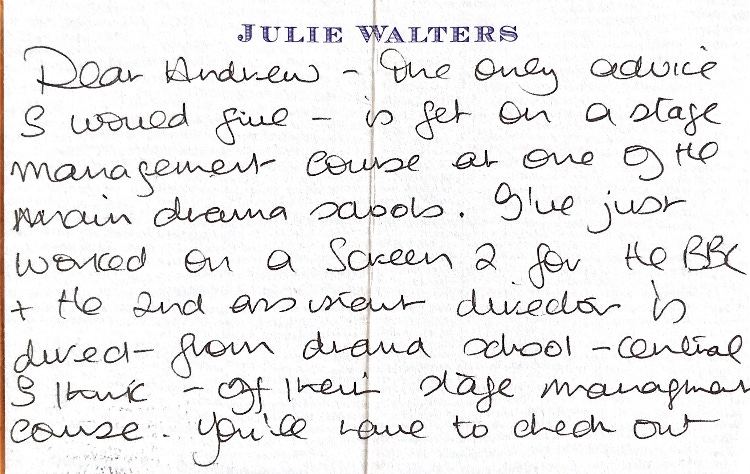 JULIE WALTERS
Dear Andrew – The only advice
I would give – is get on a stage
management course at one of the
main drama schools. I've just
worked on a Screen 2 for the BBC
+ the 2nd assistant director is
direct – from drama school – central
I think – off their stage managment
course. You'll have to check out